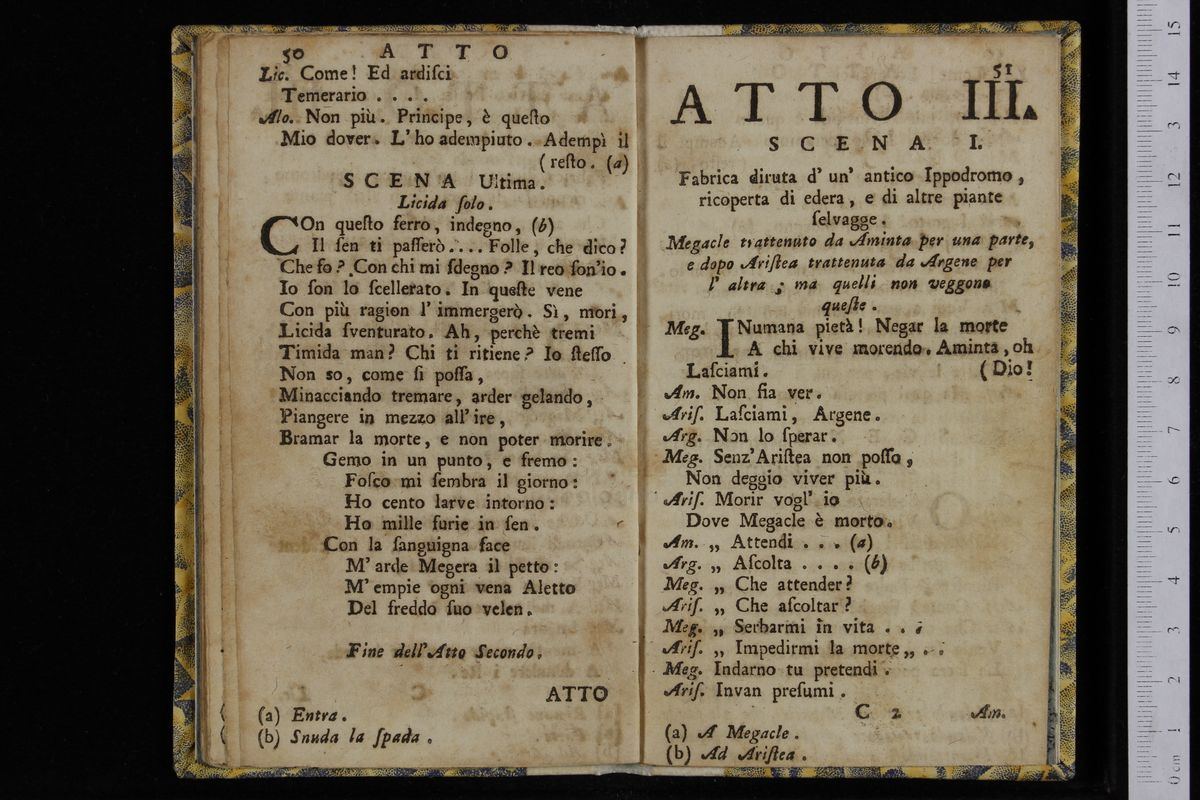 50 ATTO
Lic. Come! Ed ardiſci
Temerario . . . .
Alo. Non più. Principe, è queſto
Mio dover. L' ho adempiuto. Adempì il
(reſto. (a)
SCENA Ultima.
Licida ſolo.
COn queſto ferro, indegno, (b)
Il ſen ti paſſerò.... Folle, che dico?
Che fo? Con chi mi ſdegno? Il reo ſon'io.
Io ſon lo ſcellerato. In queſte vene
Con più ragion l' immergerò. Sì, mori,
Licida ſventurato. Ah, perchè tremi
Timida man? Chi ti ritiene? Io ſteſſo
Non so, come ſi poſſa,
Minacciando tremare, arder gelando,
Piangere in mezzo all' ire,
Bramar la morte, e non poter morire.
Gemo in un punto, e fremo:
Foſco mi ſembra il giorno:
Ho cento larve intorno:
Ho mille furie in ſen.
Con la ſanguigna face
M' arde Megera il petto:
M' empie ogni vena Aletto
Del freddo ſuo velen.
Fine dell' Atto Secondo.
ATTO
(a) Entra.
(b) Snuda la ſpada.
51
ATTO III.
SCENA I.
Fabrica diruta d' un' antico Ippodromo,
ricoperta di edera, e di altre piante
ſelvagge.
Megacle trattenuto da Aminta per una parte,
e dopo Ariſtea trattenuta da Argene per
l' altra; ma quelli non veggono
queſte.
Meg. INumana pietà! Negar la morte
A chi vive morendo. Aminta, oh
Laſciami. (Dio!
Am. Non ſia ver.
Ariſ. Laſciami, Argene.
Arg. Non lo ſperar.
Meg. Senz' Ariſtea non poſſo,
Non deggio viver più.
Ariſ. Morir vogl' io
Dove Megacle è morto.
Am. „ Attendi . . . (a)
Arg. „ Aſcolta . . . . (b)
Meg. „ Che attender?
Ariſ. „ Che aſcoltar?
Meg. „ Serbarmi in vita . . .
Ariſ. „ Impedirmi la morte „ . .
Meg. Indarno tu pretendi.
Ariſ. Invan preſumi.
C 2 Am.
(a) A Megacle.
(b) Ad Ariſtea.
0 cm 1 2 3 4 5 6 7 8 9 10 11 12 3 14 15